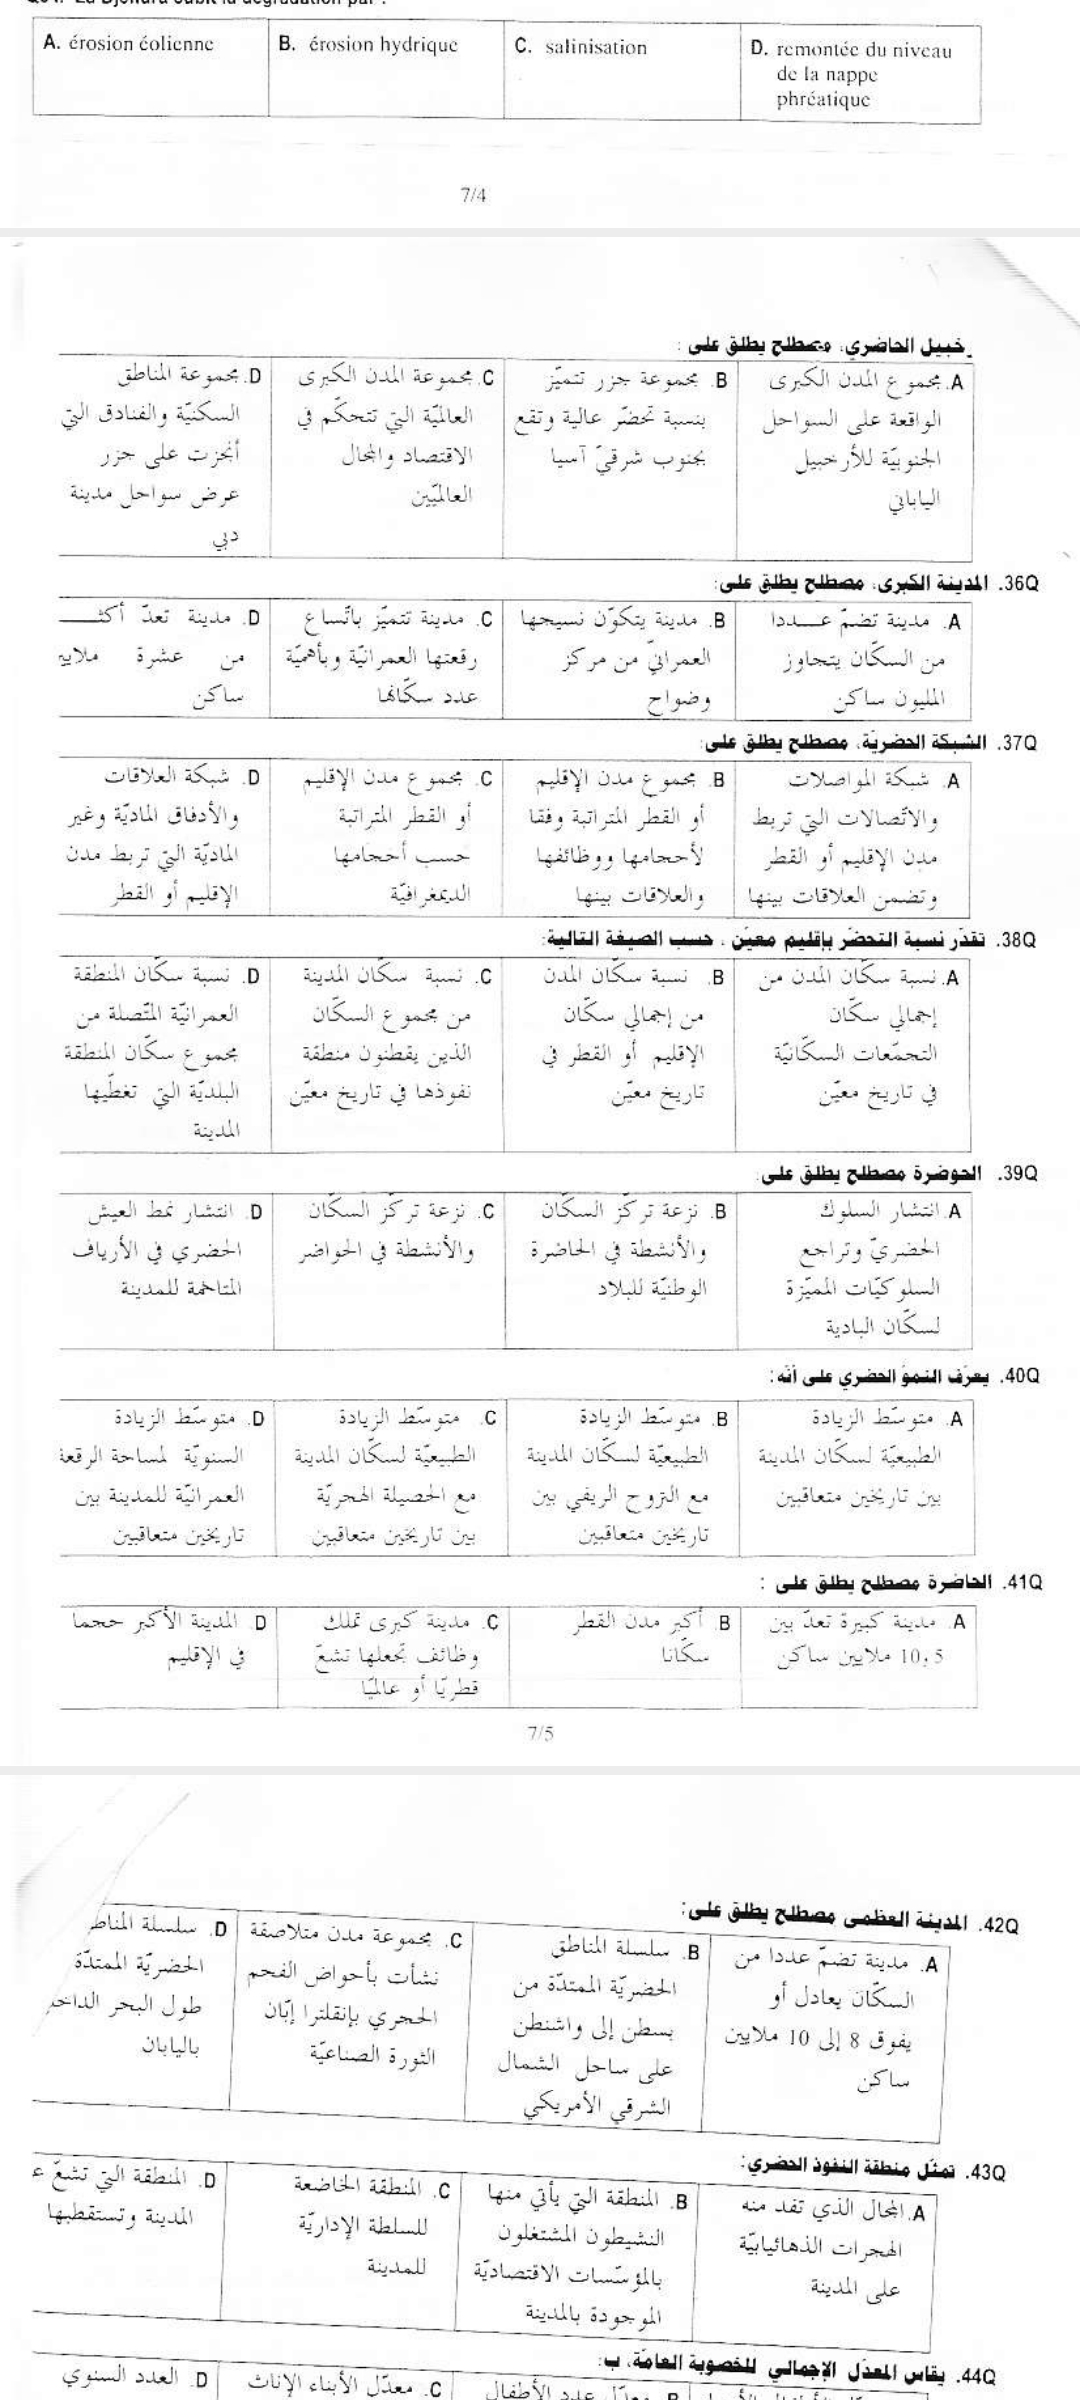 A. érosion éolienne
B. érosion hydrique
C. salinisation
D. remontée du niveau
de la nappe
phréatique
7/4
خبيل الحاضري، مصطلح يطلق على :
A. مجموع المدن الكبرى
الواقعة على السواحل
الجنوبيّة للأرخبيل
الياباني
B. مجموعة جزر تتميّز
بنسبة تحضّر عالية وتقع
بجنوب شرقيّ آسيا
C. مجموعة المدن الكبرى
العالميّة التي تتحكّم في
الاقتصاد والمجال
العالميّين
D. مجموعة المناطق
السكنيّة والفنادق التي
أنجزت على جزر
عرض سواحل مدينة
دبي
36Q. المدينة الكبرى، مصطلح يطلق على:
A. مدينة تضمّ عـــددا
من السكّان يتجاوز
المليون ساكن
B. مدينة يتكوّن نسيجها
العمرانيّ من مركز
وضواح
C. مدينة تتميّز باتّساع
رقعتها العمرانيّة وبأهميّة
عدد سكّانها
D. مدينة تعدّ أكثـــ
من عشرة ملايي
ساكن
37Q. الشبكة الحضريّة، مصطلح يطلق على:
A. شبكة المواصلات
والاتّصالات التي تربط
مدن الإقليم أو القطر
وتضمن العلاقات بينها
B. مجموع مدن الإقليم
أو القطر المتراتبة وفقا
لأحجامها ووظائفها
والعلاقات بينها
C. مجموع مدن الإقليم
أو القطر المتراتبة
حسب أحجامها
الديمغرافيّة
D. شبكة العلاقات
والأدفاق الماديّة وغير
الماديّة التي تربط مدن
الإقليم أو القطر
38Q. تقدّر نسبة التحضّر بإقليم معيّن ، حسب الصيغة التالية:
A. نسبة سكّان المدن من
إجمالي سكّان
التجمّعات السكّانيّة
في تاريخ معيّن
B. نسبة سكّان المدن
من إجمالي سكّان
الإقليم أو القطر في
تاريخ معيّن
C. نسبة سكّان المدينة
من مجموع السكّان
الذين يقطنون منطقة
نفوذها في تاريخ معيّن
D. نسبة سكّان المنطقة
العمرانيّة المتّصلة من
مجموع سكّان المنطقة
البلديّة التي تغطّيها
المدينة
39Q. الحوضرة مصطلح يطلق على:
A. انتشار السلوك
الحضريّ وتراجع
السلوكيّات المميّزة
لسكّان البادية
B. نزعة تركّز السكّان
والأنشطة في الحاضرة
الوطنيّة للبلاد
C. نزعة تركّز السكّان
والأنشطة في الحواضر
D. انتشار نمط العيش
الحضري في الأرياف
المتاخمة للمدينة
40Q. يعرّف النموّ الحضري على أنّه:
A. متوسّط الزيادة
الطبيعيّة لسكّان المدينة
بين تاريخين متعاقبين
B. متوسّط الزيادة
الطبيعيّة لسكّان المدينة
مع النزوح الريفي بين
تاريخين متعاقبين
C. متوسّط الزيادة
الطبيعيّة لسكّان المدينة
مع الحصيلة الهجريّة
بين تاريخين متعاقبين
D. متوسّط الزيادة
السنويّة لمساحة الرقعة
العمرانيّة للمدينة بين
تاريخين متعاقبين
41Q. الحاضرة مصطلح يطلق على :
A. مدينة كبيرة تعدّ بين
10,5 ملايين ساكن
B. أكبر مدن القطر
سكّانا
C. مدينة كبرى تملك
وظائف تجعلها تشعّ
قطريّا أو عالميّا
D. المدينة الأكبر حجما
في الإقليم
7/5
42Q. المدينة العظمى مصطلح يطلق على:
A. مدينة تضمّ عددا من
السكّان يعادل أو
يفوق 8 إلى 10 ملايين
ساكن
B. سلسلة المناطق
الحضريّة الممتدّة من
بسطن إلى واشنطن
على ساحل الشمال
الشرقي الأمريكي
C. مجموعة مدن متلاصقة
نشأت بأحواض الفحم
الحجري بإنقلترا إبّان
الثورة الصناعيّة
D. سلسلة المناط
الحضريّة الممتدّة
طول البحر الداخ
باليابان
43Q. تمثّل منطقة النفوذ الحضري:
A. المجال الذي تفد منه
الهجرات الذهائيابيّة
على المدينة
B. المنطقة التي يأتي منها
النشيطون المشتغلون
بالمؤسّسات الاقتصاديّة
الموجودة بالمدينة
C. المنطقة الخاضعة
للسلطة الإداريّة
للمدينة
D. المنطقة التي تشعّ ع
المدينة وتستقطبها
44Q. يقاس المعدّل الإجمالي للخصوبة العامّة، ب:
B. معدّل عدد الأطفال
C. معدّل الأبناء الإناث
D. العدد السنوي